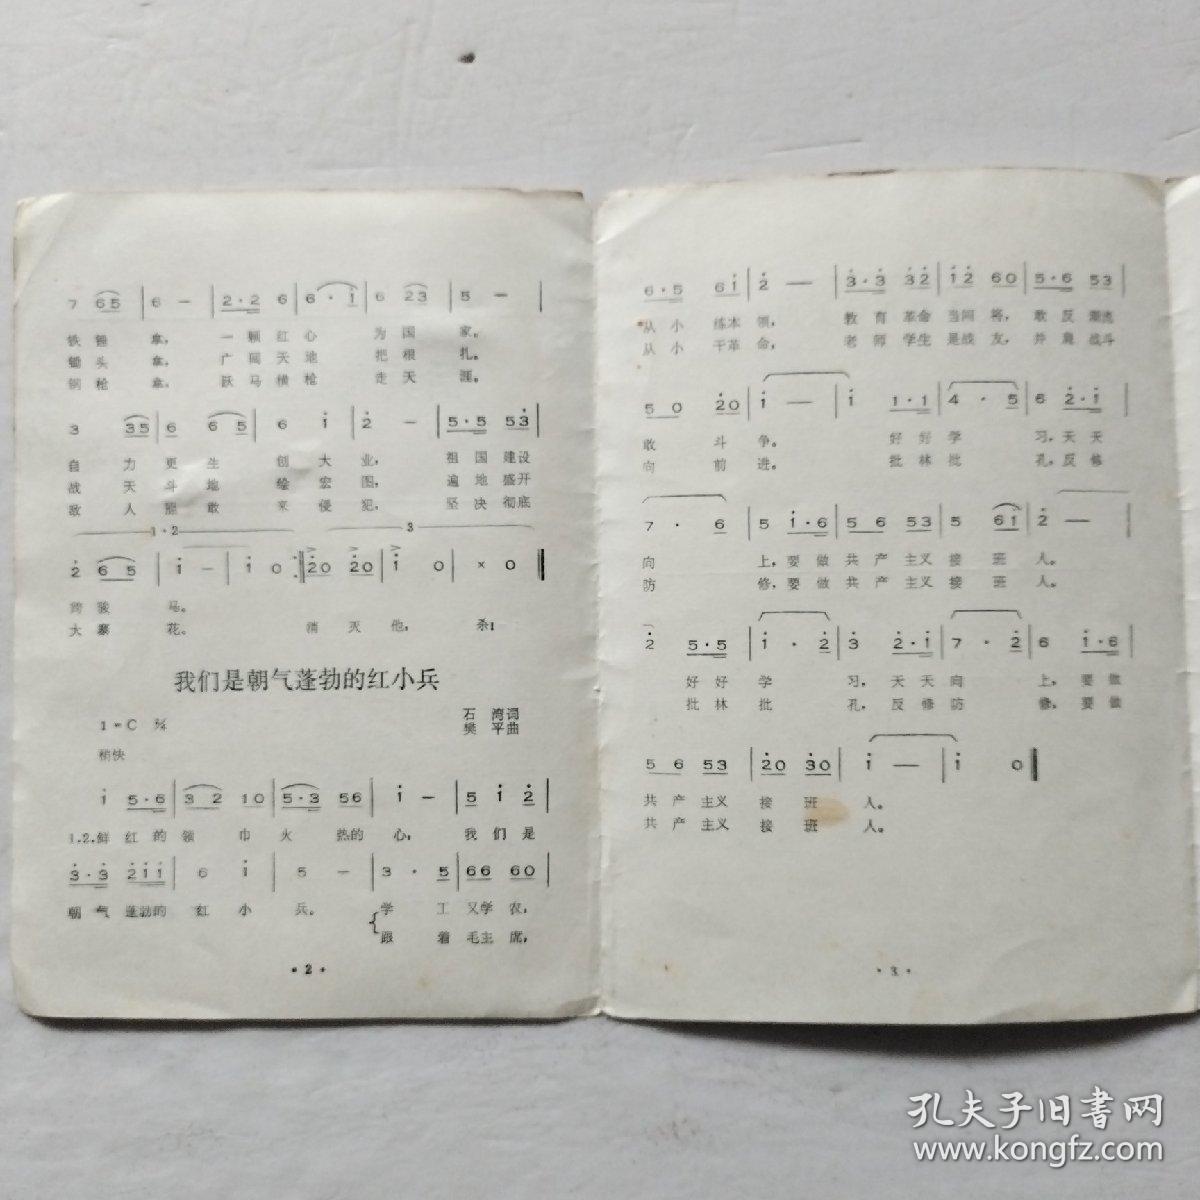 7 65 | 6 — | 2·2 6 | 6·i | 6 23 | 5 — |
铁锤拿, 一颗红心为国家。
锄头拿, 广阔天地把根扎。
钢枪拿, 跃马横枪走天涯。
3 35 | 6 65 | 6 i | 2 — | 5·5 53 |
自力更生创大业, 祖国建设
战天斗地绘宏图, 遍地盛开
敌人胆敢来侵犯, 坚决彻底
1·2 3
2 65 | i — | i 0 :‖ 20 20 | i 0 | × 0 ‖
跨骏马。
大寨花。 消灭他, 杀!
我们是朝气蓬勃的红小兵
石湾词
1=C 2/4 樊平曲
稍快
i 5·6 | 3 2 10 | 5·3 56 | i — | 5 i 2 |
1.2.鲜红的领巾火热的心, 我们是
3·3 2ii | 6 i | 5 — | 3·5 | 66 60 |
朝气蓬勃的红小兵。 学工又学农,
跟着毛主席,
·2·
6·5 6i | 2 — | 3·3 32 | i2 60 | 5·6 53 |
从小练本领, 教育革命当闯将, 敢反潮流
从小干革命, 老师学生是战友, 并肩战斗
50 20 | i — | i 1·1 | 4·5 | 6 2·i |
敢斗争。 好好学习,天天
向前进。 批林批孔,反修
7·6 | 5 i·6 | 5 6 53 | 5 6i | 2 — |
向上,要做共产主义接班人。
防修,要做共产主义接班人。
2 5·5 | i·2 | 3 2·i | 7·2 | 6 i·6 |
好好学习, 天天向上, 要做
批林批孔, 反修防修, 要做
5 6 53 | 20 30 | i — | i 0 ‖
共产主义接班人。
共产主义接班人。
·3·
孔夫子旧书网
www.kongfz.com